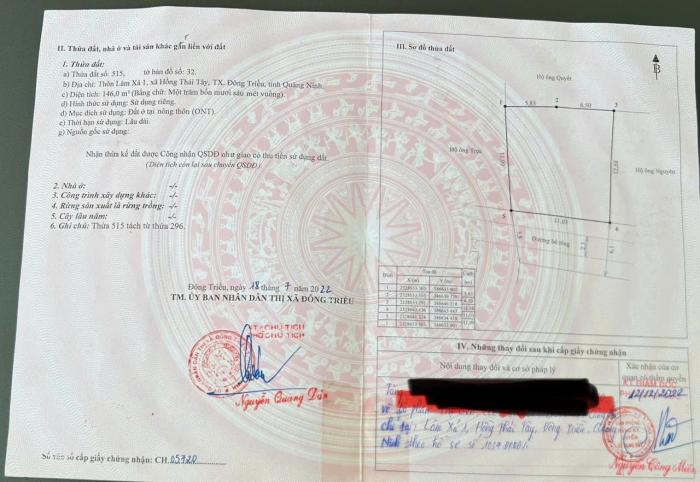 II. Thửa đất, nhà ở và tài sản khác gắn liền với đất
1. Thửa đất:
a) Thửa đất số: 515, tờ bản đồ số: 32.
b) Địa chỉ: Thôn Lâm Xá 1, xã Hồng Thái Tây, TX. Đông Triều, tỉnh Quảng Ninh.
c) Diện tích: 146,0 m² (Bằng chữ: Một trăm bốn mươi sáu mét vuông).
d) Hình thức sử dụng: Sử dụng riêng.
đ) Mục đích sử dụng: Đất ở tại nông thôn (ONT).
e) Thời hạn sử dụng: Lâu dài.
g) Nguồn gốc sử dụng:
Nhận thừa kế đất được Công nhận QSDĐ như giao có thu tiền sử dụng đất.
(Diện tích còn lại sau chuyển QSDĐ).
2. Nhà ở: -/-
3. Công trình xây dựng khác: -/-
4. Rừng sản xuất là rừng trồng: -/-
5. Cây lâu năm: -/-
6. Ghi chú: Thửa 515 tách từ thửa 296.
Đông Triều, ngày 18 tháng 7 năm 2022
TM. ỦY BAN NHÂN DÂN THỊ XÃ ĐÔNG TRIỀU
KT. CHỦ TỊCH
PHÓ CHỦ TỊCH
Nguyễn Quang Dân
Số vào sổ cấp giấy chứng nhận: CH.05720
III. Sơ đồ thửa đất
B
Hộ ông Quyết
1 5,83 2 6,50 3
Hộ ông Trục
Hộ ông Nguyên
5 11,03 4
Đường bê tông
IV. Những thay đổi sau khi cấp giấy chứng nhận
Nội dung thay đổi và cơ sở pháp lý
Xác nhận của cơ
quan có thẩm quyền
KT. GIÁM ĐỐC
12/12/2022
chỉ tại: Lâm Xá 1, Hồng Thái Tây, Đông Triều, Quảng
Ninh theo hồ sơ số
Nguyễn Công Miến